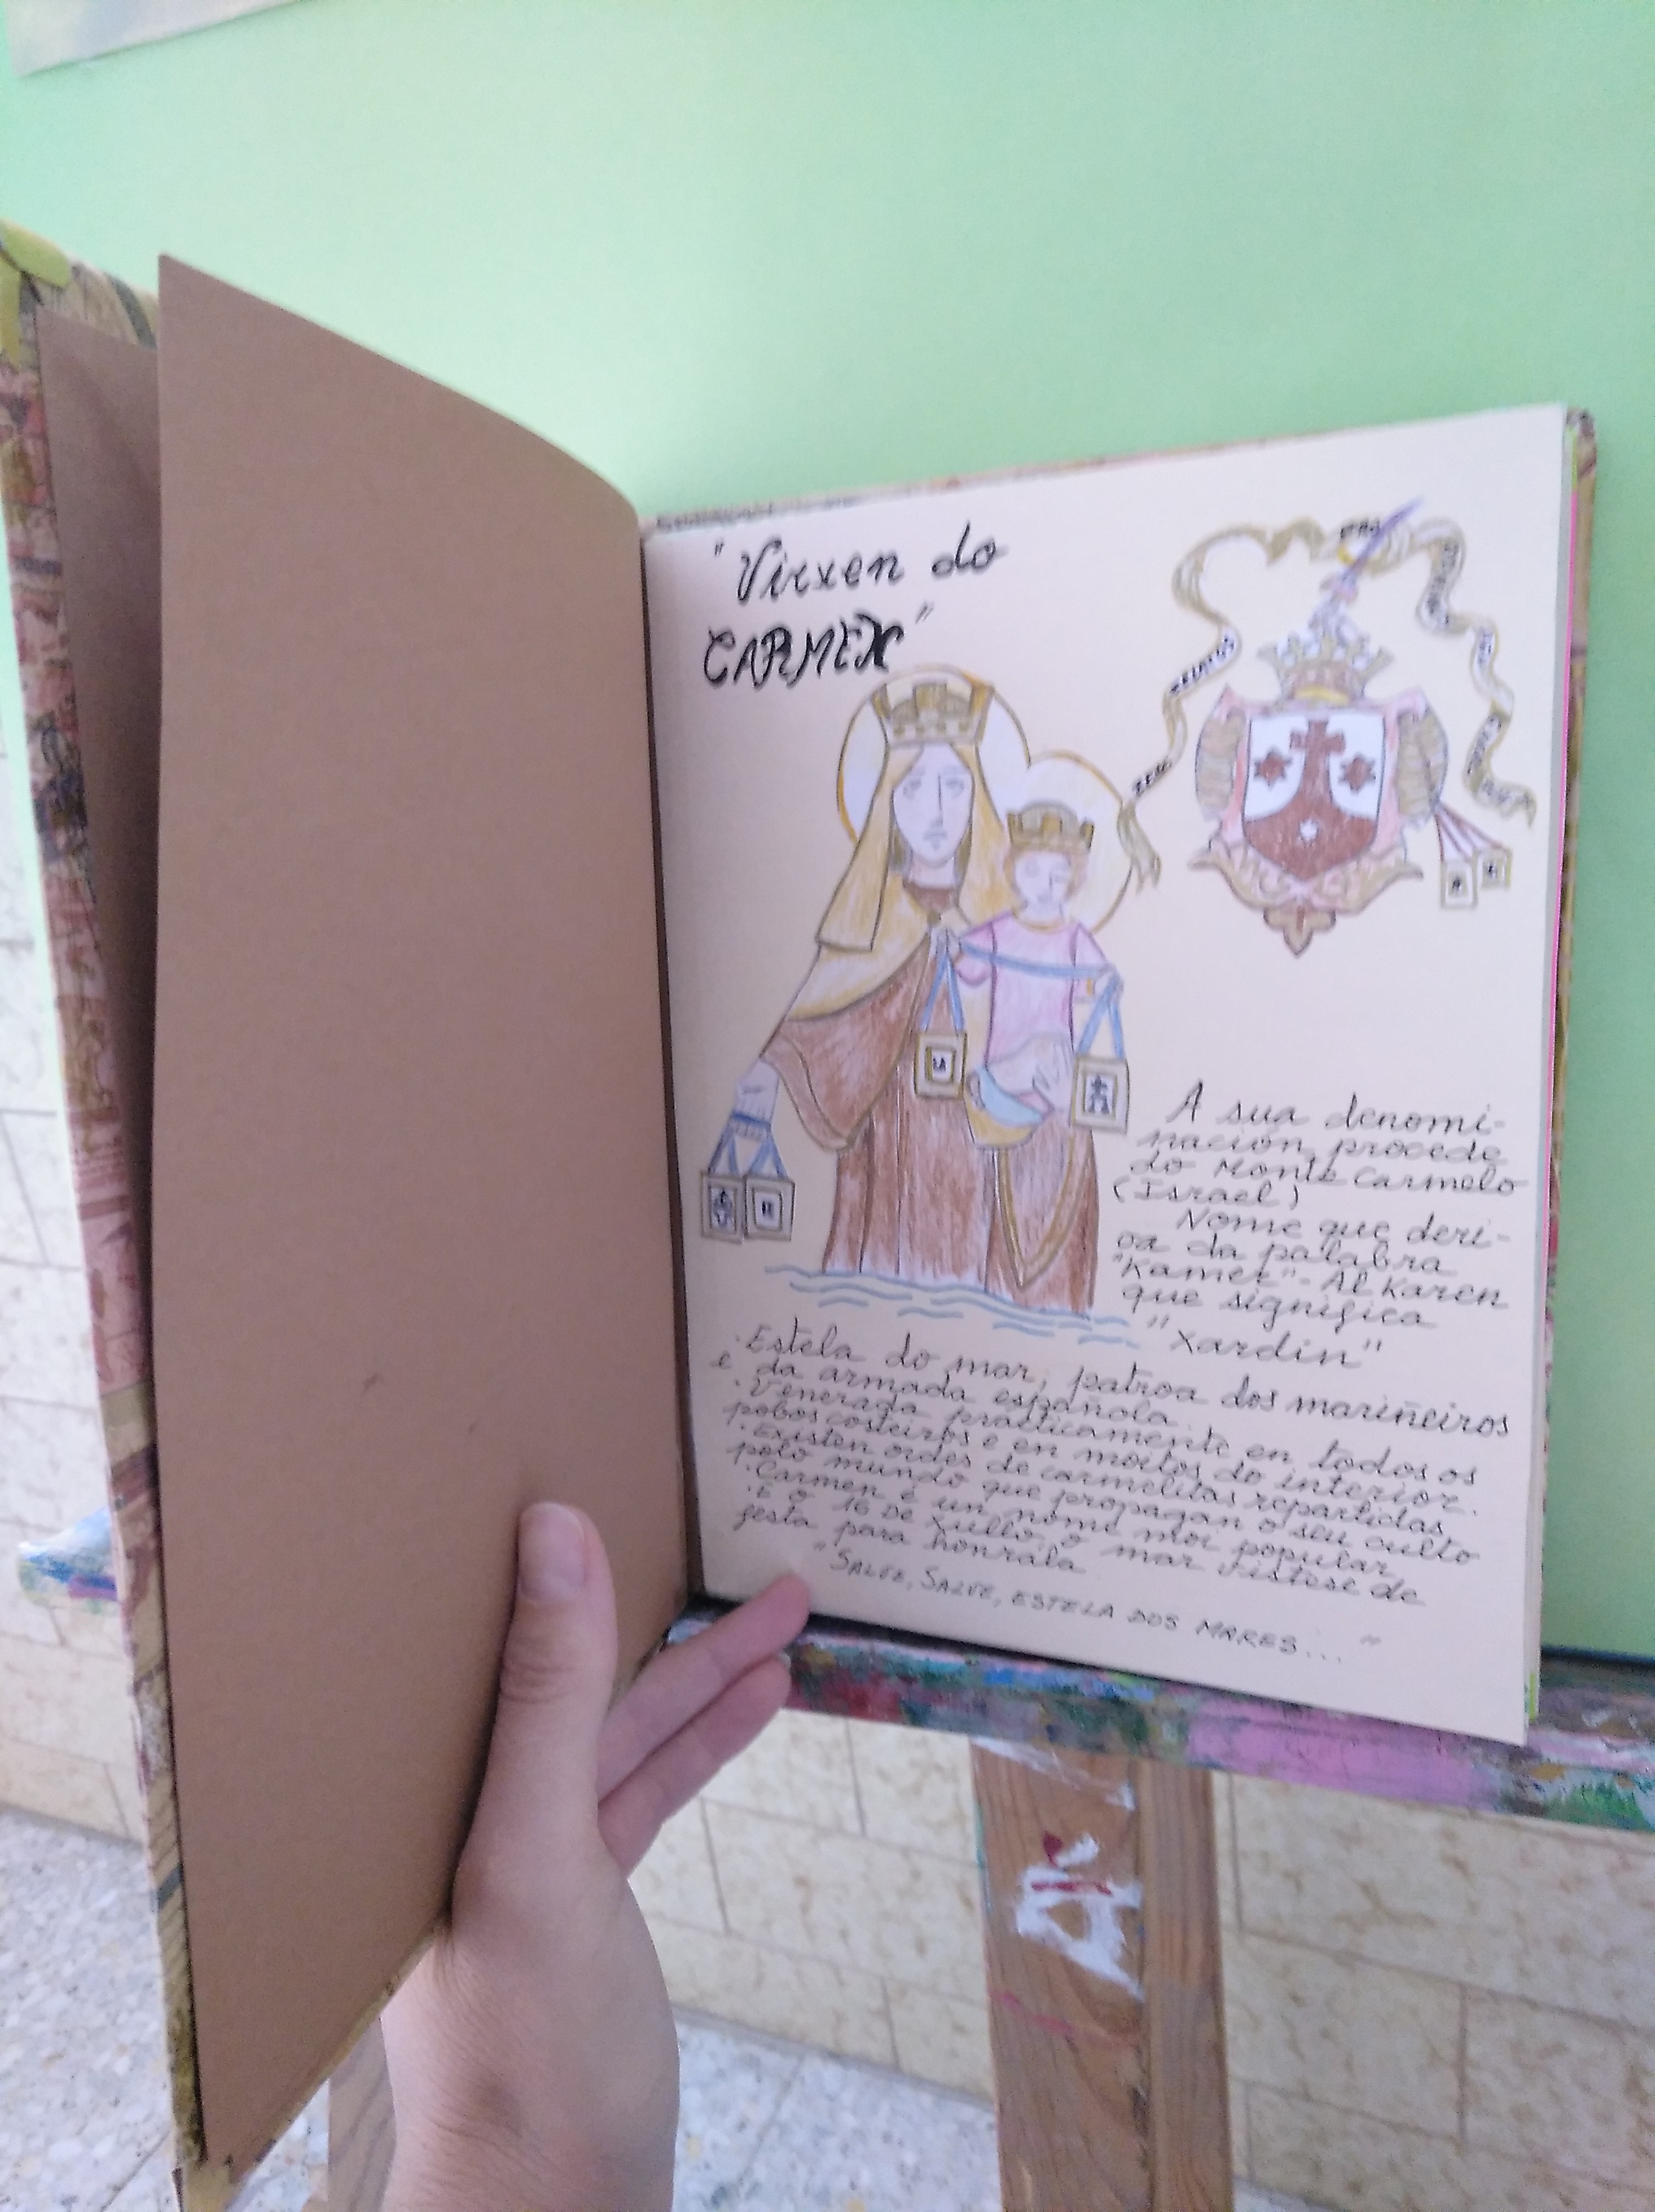 "Virxen do
CARMEN"
A sua denomi-
nación procede
do Monte Carmelo
(Israel)
Nome que deri-
va da palabra
"Kamel"- Al Karen
que significa
"Xardin"
· Estela do mar, patroa dos mariñeiros
e da armada española.
· Venerada prácticamente en todos os
pobos costeiros e en moitos do interior.
· Existen ordes de carmelitas repartidas
polo mundo que propagan o seu culto
· Carmen é un nome moi popular
· E o 16 DE Xullo, o mar vístese de
festa para honrala
"SALVE, SALVE, ESTELA DOS MARES..."